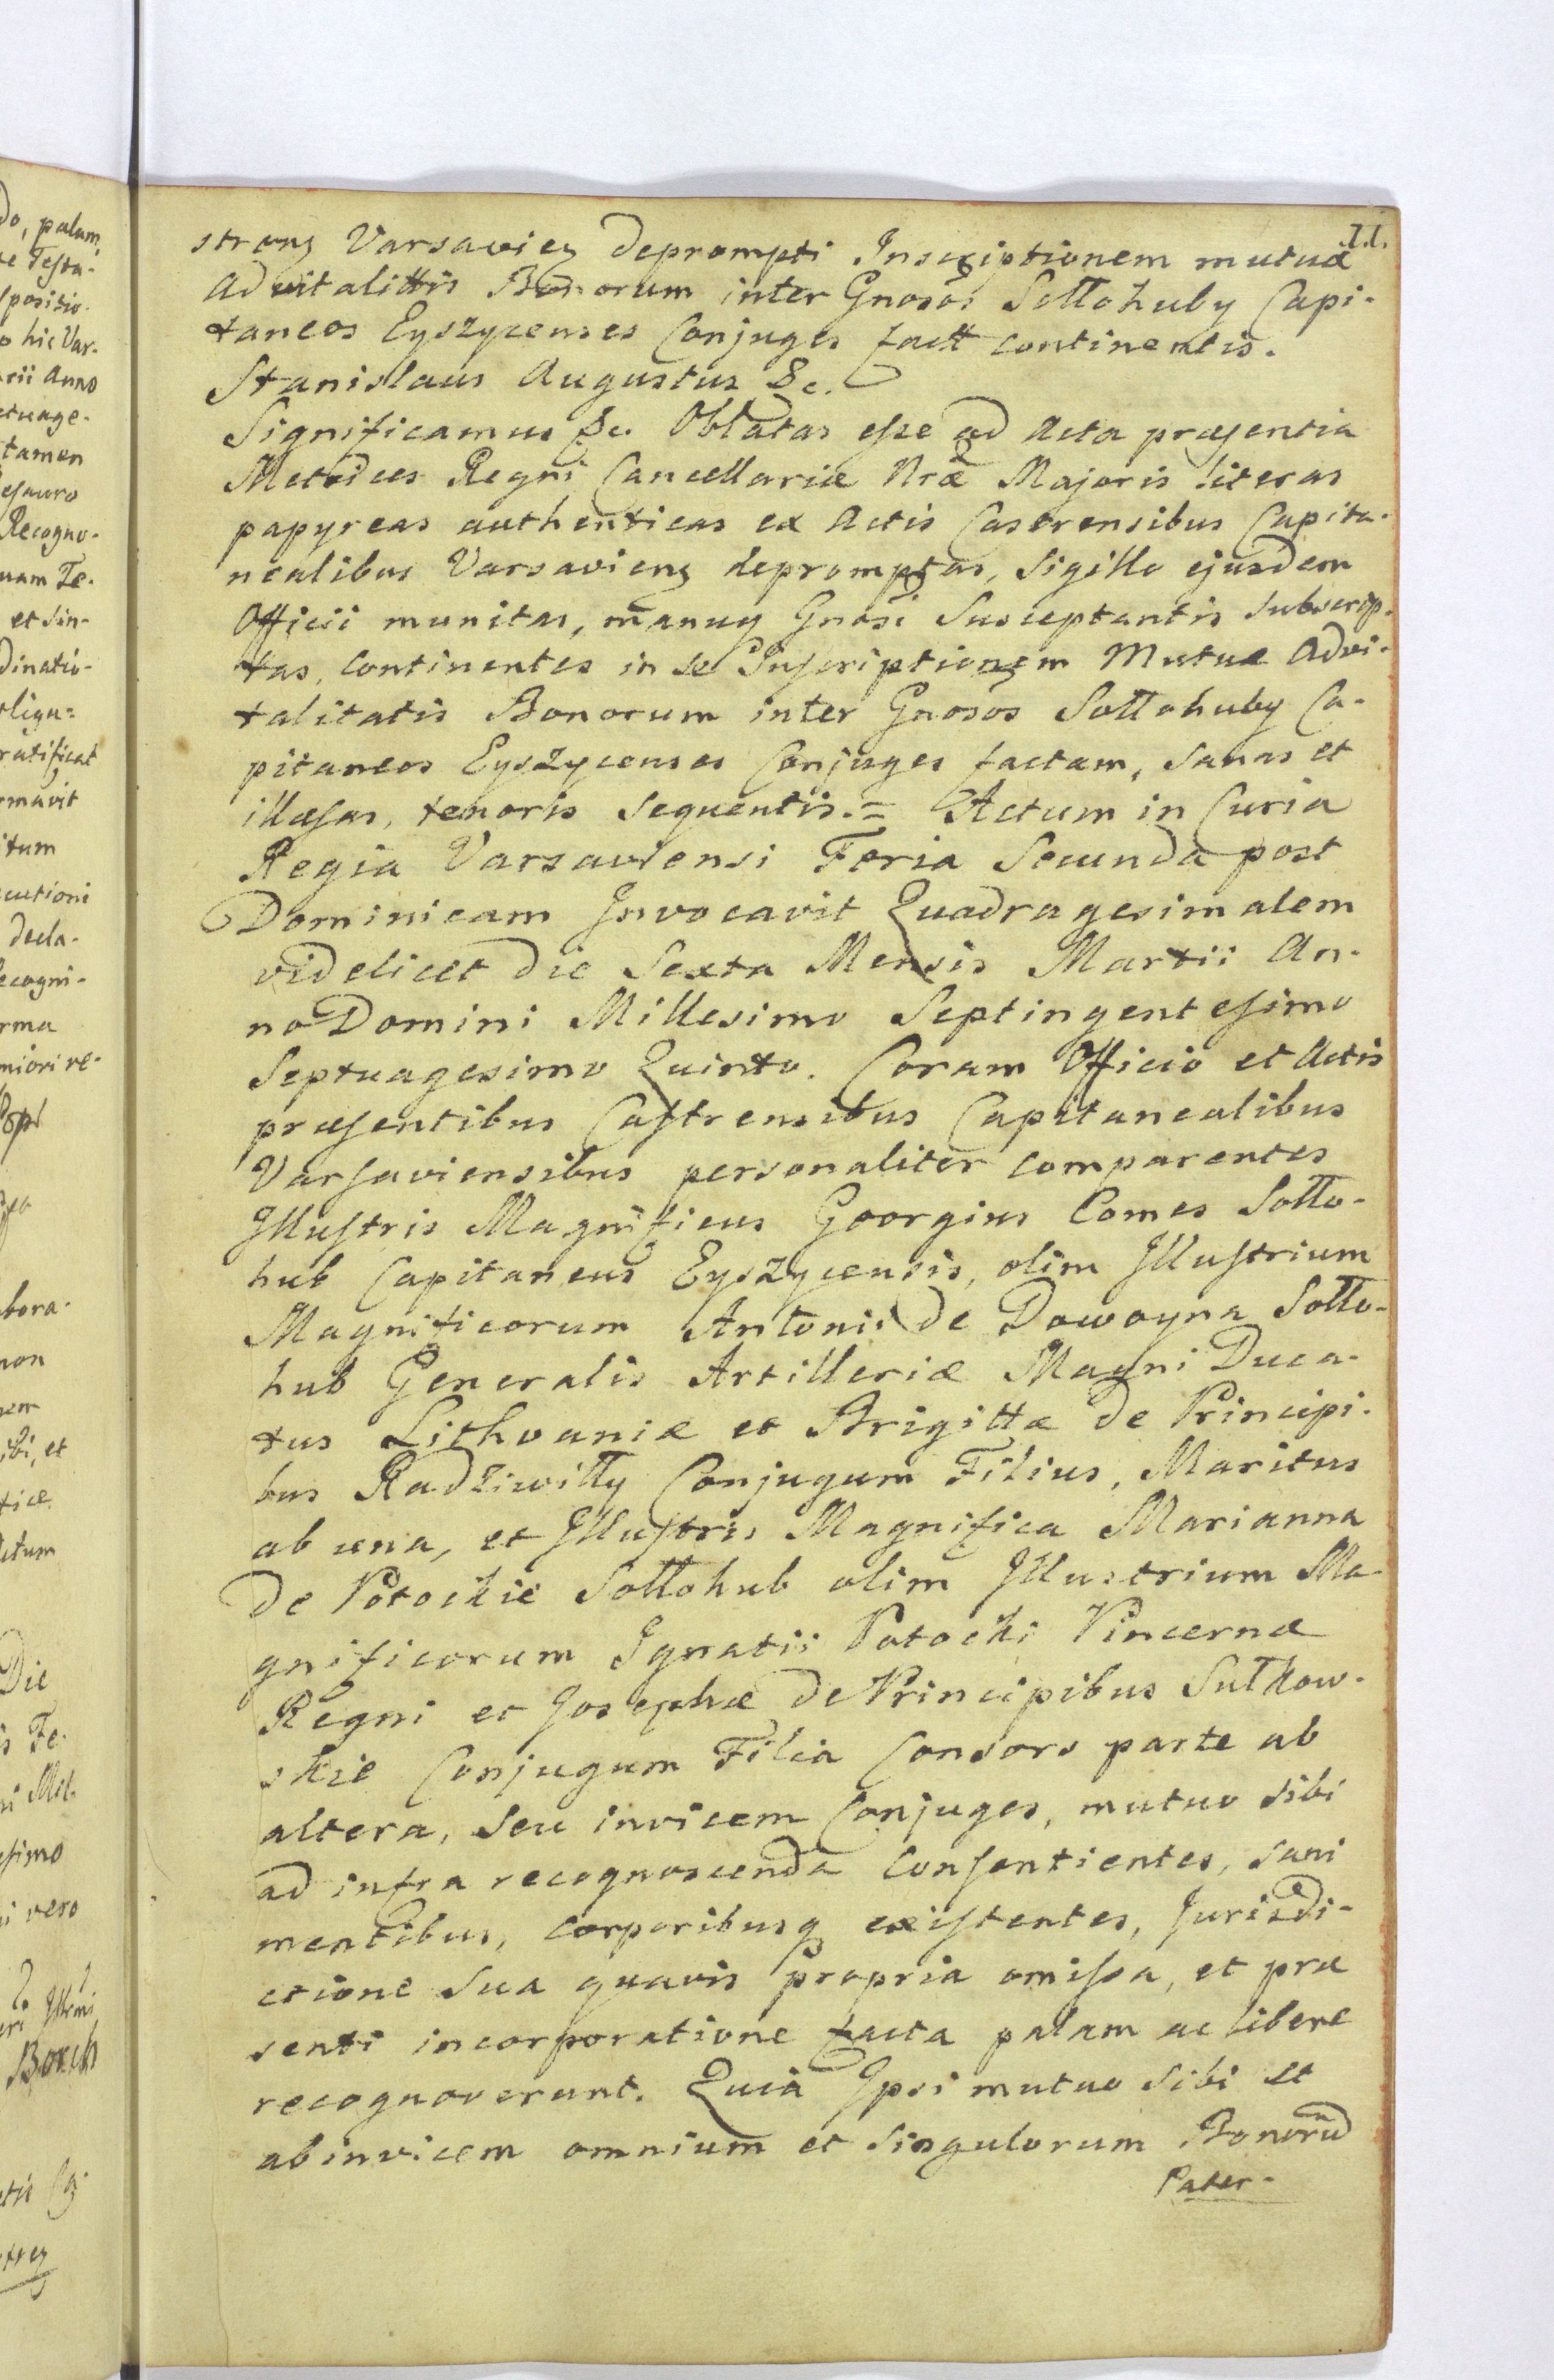 11.
streng Varsavieng deprompti Inscriptionem mutuæ
Advitalittis Bonorum inter Gnosos Sołłohuby Capi-
taneos Eyszycenses Conjuges factt continentis.
Stanislaus Augustus &c.
Significamus &c. Oblatas esse ad Acta præsentia
Metrices Regni Cancellariæ Nræ Majoris literas
papyreas authenticas ex Actis Castrensibus Capita-
nealibus Varsavieng depromptas, Sigillo ejusdem
Officii munitas, manuq Gnosi Susceptantis subscrip-
tas, continentes in se Inscriptionem Mutuæ Advi-
talitatis Bonorum inter Gnosos Sołłohuby Ca-
pitaneos Eyszycenses Conjuges factam, sanas et
illæsas, tenoris sequentis. = Actum in Curia
Regia Varsaviensi Feria Secunda post
Dominicam Invocavit Quadragesimalem
videlicet die Sexta Mensis Martii An-
no Domini Millesimo Septingentesimo
Septuagesimo Quinto. Coram Officio et Actis
præsentibus Castrensibus Capitanealibus
Varsaviensibus personaliter comparentes
Illustris Magnificus Georgius Comes Sołło-
hub Capitaneus Eyszycensis, olim Illustrium
Magnificorum Antonii de Dowoyna Sołło-
hub Generalis Artilleriæ Magni Duca-
tus Lithvaniæ et Brigittæ de Principi-
bus Radziwiłły Conjugum Filius, Maritus
ab una, et Illustris Magnifica Marianna
de Potockie Sołłohub olim Illustrium Ma-
gnificorum Ignatii Potocki Pincernæ
Regni et Josephæ de Principibus Sułkow-
skie Conjugum Filia Consors parte ab
altera, seu invicem Conjuges, mutuo sibi
ad infra recognoscenda consentientes, sani
mentibus, corporibusq existentes, Jurisdi-
ctione sua quavis propria omissa, et præ
senti incorporatione facta palam ac libere
recognoverunt. Quia Ipsi mutuo sibi et
abinvicem omnium et singulorum Bonorū
Pater-
do, palam,
Testa-
positio-
hic Var-
rii Anno
ctuage-
tamen
esauro
Recogno-
nam Te-
et sin-
dinatio-
ratificat
rmavit
itum
cutioni
decla-
ecogni-
rma
miori re-
bora-
non
ibi, et
Die
is Te-
esimo
i vero
Borch